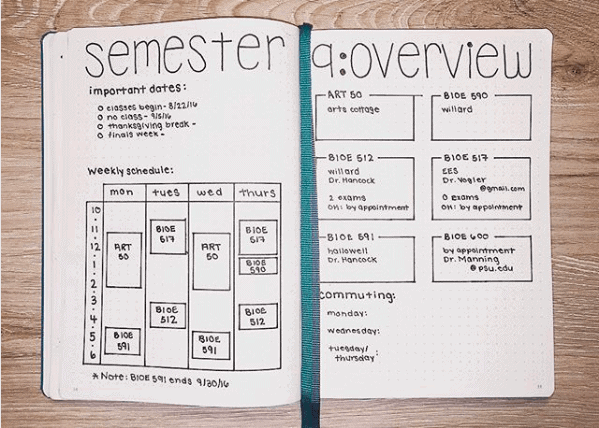 semester 9:overview
important dates:
classes begin - 8/22/16
no class - 9/5/16
thanksgiving break -
finals week -
weekly schedule:
mon tues wed thurs
10
11
12
1
2
3
4
5
6
ART
50
BIOE
591
BIOE
517
BIOE
512
ART
50
BIOE
591
BIOE
517
BIOE
590
BIOE
512
*Note: BIOE 591 ends 9/20/16
ART 50
arts cottage
BIOE 590
willard
BIOE 512
willard
Dr. Hancock
2 exams
OH: by appointment
BIOE 517
EES
Dr. Vogler
@gmail.com
0 exams
OH: by appointment
BIOE 591
hallowell
Dr. Hancock
BIOE 600
by appointment
Dr. Manning
@psu.edu
commuting:
monday:
wednesday:
tuesday/
thursday: